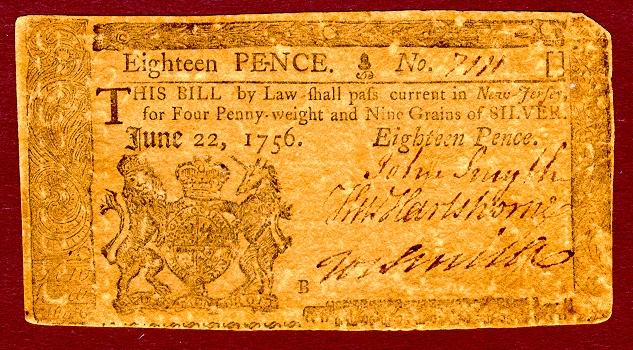 Eighteen PENCE. No. 7111
THIS BILL by Law ſhall paſs current in New-Jerſey,
for Four Penny-weight and Nine Grains of SILVER.
June 22, 1756. Eighteen Pence.
John Smyth
Hartshorne
Wm Smith
B